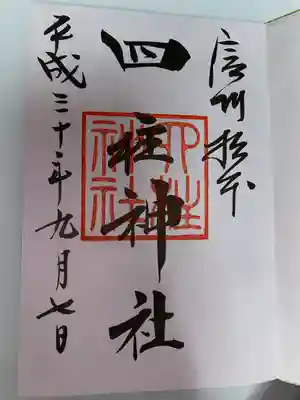 信州松本
四柱神社
四柱神社
平成三十年九月七日